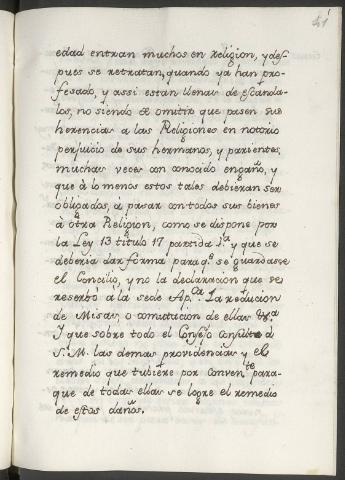 41
edad entran muchos en religion, y des-
pues se retratan, quando ya han pro-
fesado, y assi estan llenas de escanda-
los, no siendo de omitir que pasen sus
herencias a las Religiones en notorio
perjuicio de sus hermanos, y parientes,
muchas veces con conocido engaño, y
que à lo menos estos tales debieran ser
obligados, à pasar con todos sus bienes
à otra Religion, como se dispone por
la Ley 13 titulo 17 partida 1.a y que se
deberia dar forma para q.e se guardase
el Concilio, y no la declaracion que se
reserbò a la sede Ap.ca La reducion
de Misas, o comutacion de ellas &.a
Y que sobre todo el Consejo consulte à
S. M. las demas providencias y el
remedio que tubiere por conven.te para-
que de todas ellas se logre el remedio
de estos daños.